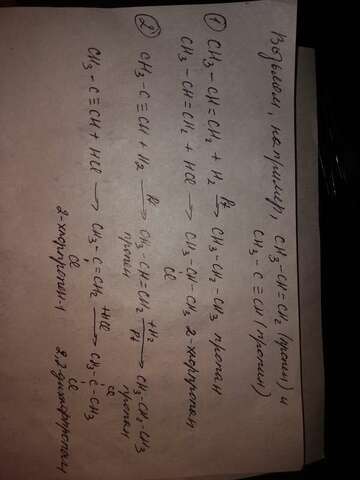 Возьмём, например, CH3-CH=CH2 (пропен) и
CH3-C≡CH (пропин)
① CH3-CH=CH2 + H2 Pt→ CH3-CH2-CH3 пропан
CH3-CH=CH2 + HCl → CH3-CH-CH3 2-хлорпропан
Cl
② CH3-C≡CH + H2 Pt→ CH3-CH=CH2 +H2 Pt→ CH3-CH2-CH3
пропен пропан
CH3-C≡CH + HCl → CH3-C=CH2 +HCl→ CH3-C-CH3
Cl Cl Cl
2-хлорпропен-1 2,2-дихлорпропан